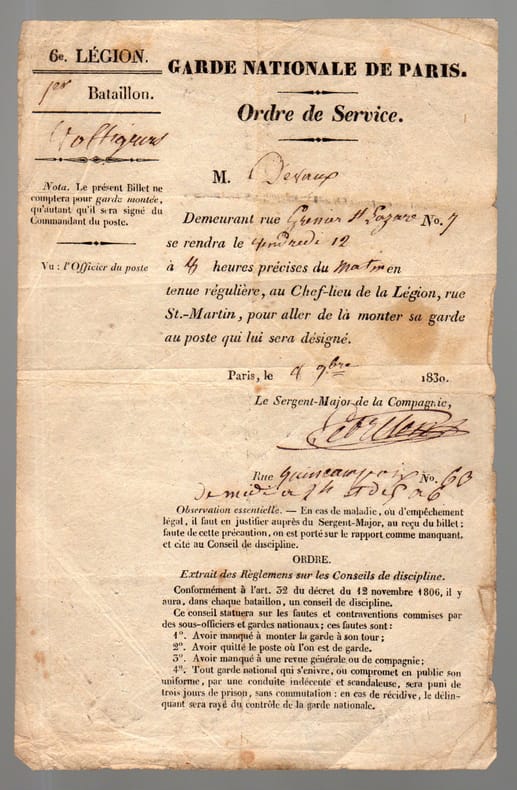 6e. LÉGION.
1er Bataillon.
Voltigeurs
Nota. Le présent Billet ne
comptera pour garde montée,
qu'autant qu'il sera signé du
Commandant du poste.
Vu : l'Officier du poste
GARDE NATIONALE DE PARIS.
Ordre de Service.
M. Devaux
Demeurant rue Grenier St Lazare No. 7
se rendra le vendredi 12
à heures précises du matin en
tenue régulière, au Chef-lieu de la Légion, rue
St.-Martin, pour aller de là monter sa garde
au poste qui lui sera désigné.
Paris, le 9bre 1830.
Le Sergent-Major de la Compagnie,
Rue quincampoix No. 60
de midi à 2 h et de 5 à 6
Observation essentielle. — En cas de maladie, ou d'empêchement
légal, il faut en justifier auprès du Sergent-Major, au reçu du billet ;
faute de cette précaution, on est porté sur le rapport comme manquant,
et cité au Conseil de discipline.
ORDRE.
Extrait des Règlemens sur les Conseils de discipline.
Conformément à l'art. 32 du décret du 12 novembre 1806, il y
aura, dans chaque bataillon, un conseil de discipline.
Ce conseil statuera sur les fautes et contraventions commises par
des sous-officiers et gardes nationaux ; ces fautes sont :
1o. Avoir manqué à monter la garde à son tour ;
2o. Avoir quitté le poste où l'on est de garde.
3o. Avoir manqué à une revue générale ou de compagnie ;
4o. Tout garde national qui s'enivre, ou compromet en public son
uniforme, par une conduite indécente et scandaleuse, sera puni de
trois jours de prison, sans commutation : en cas de récidive, le délin-
quant sera rayé du contrôle de la garde nationale.